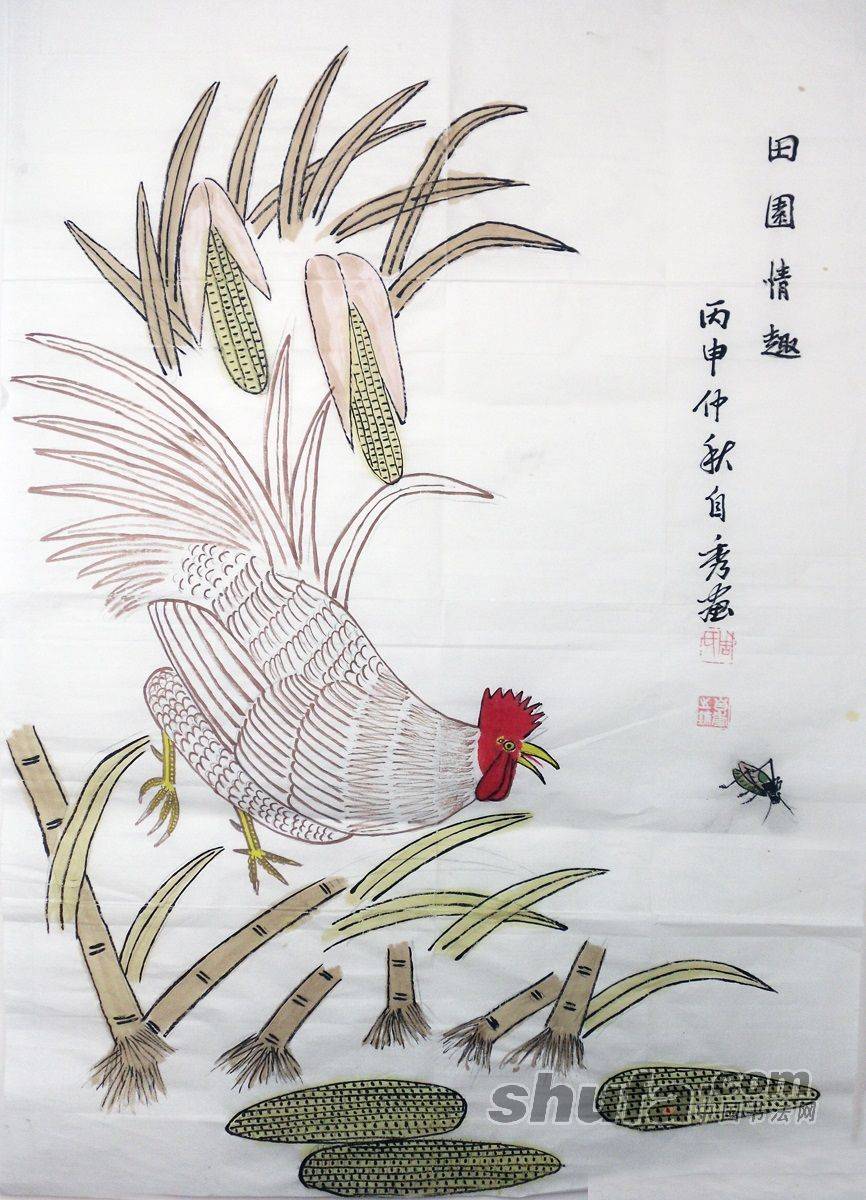 田園情趣
丙申仲秋自秀画
shufa.com
中国书法网